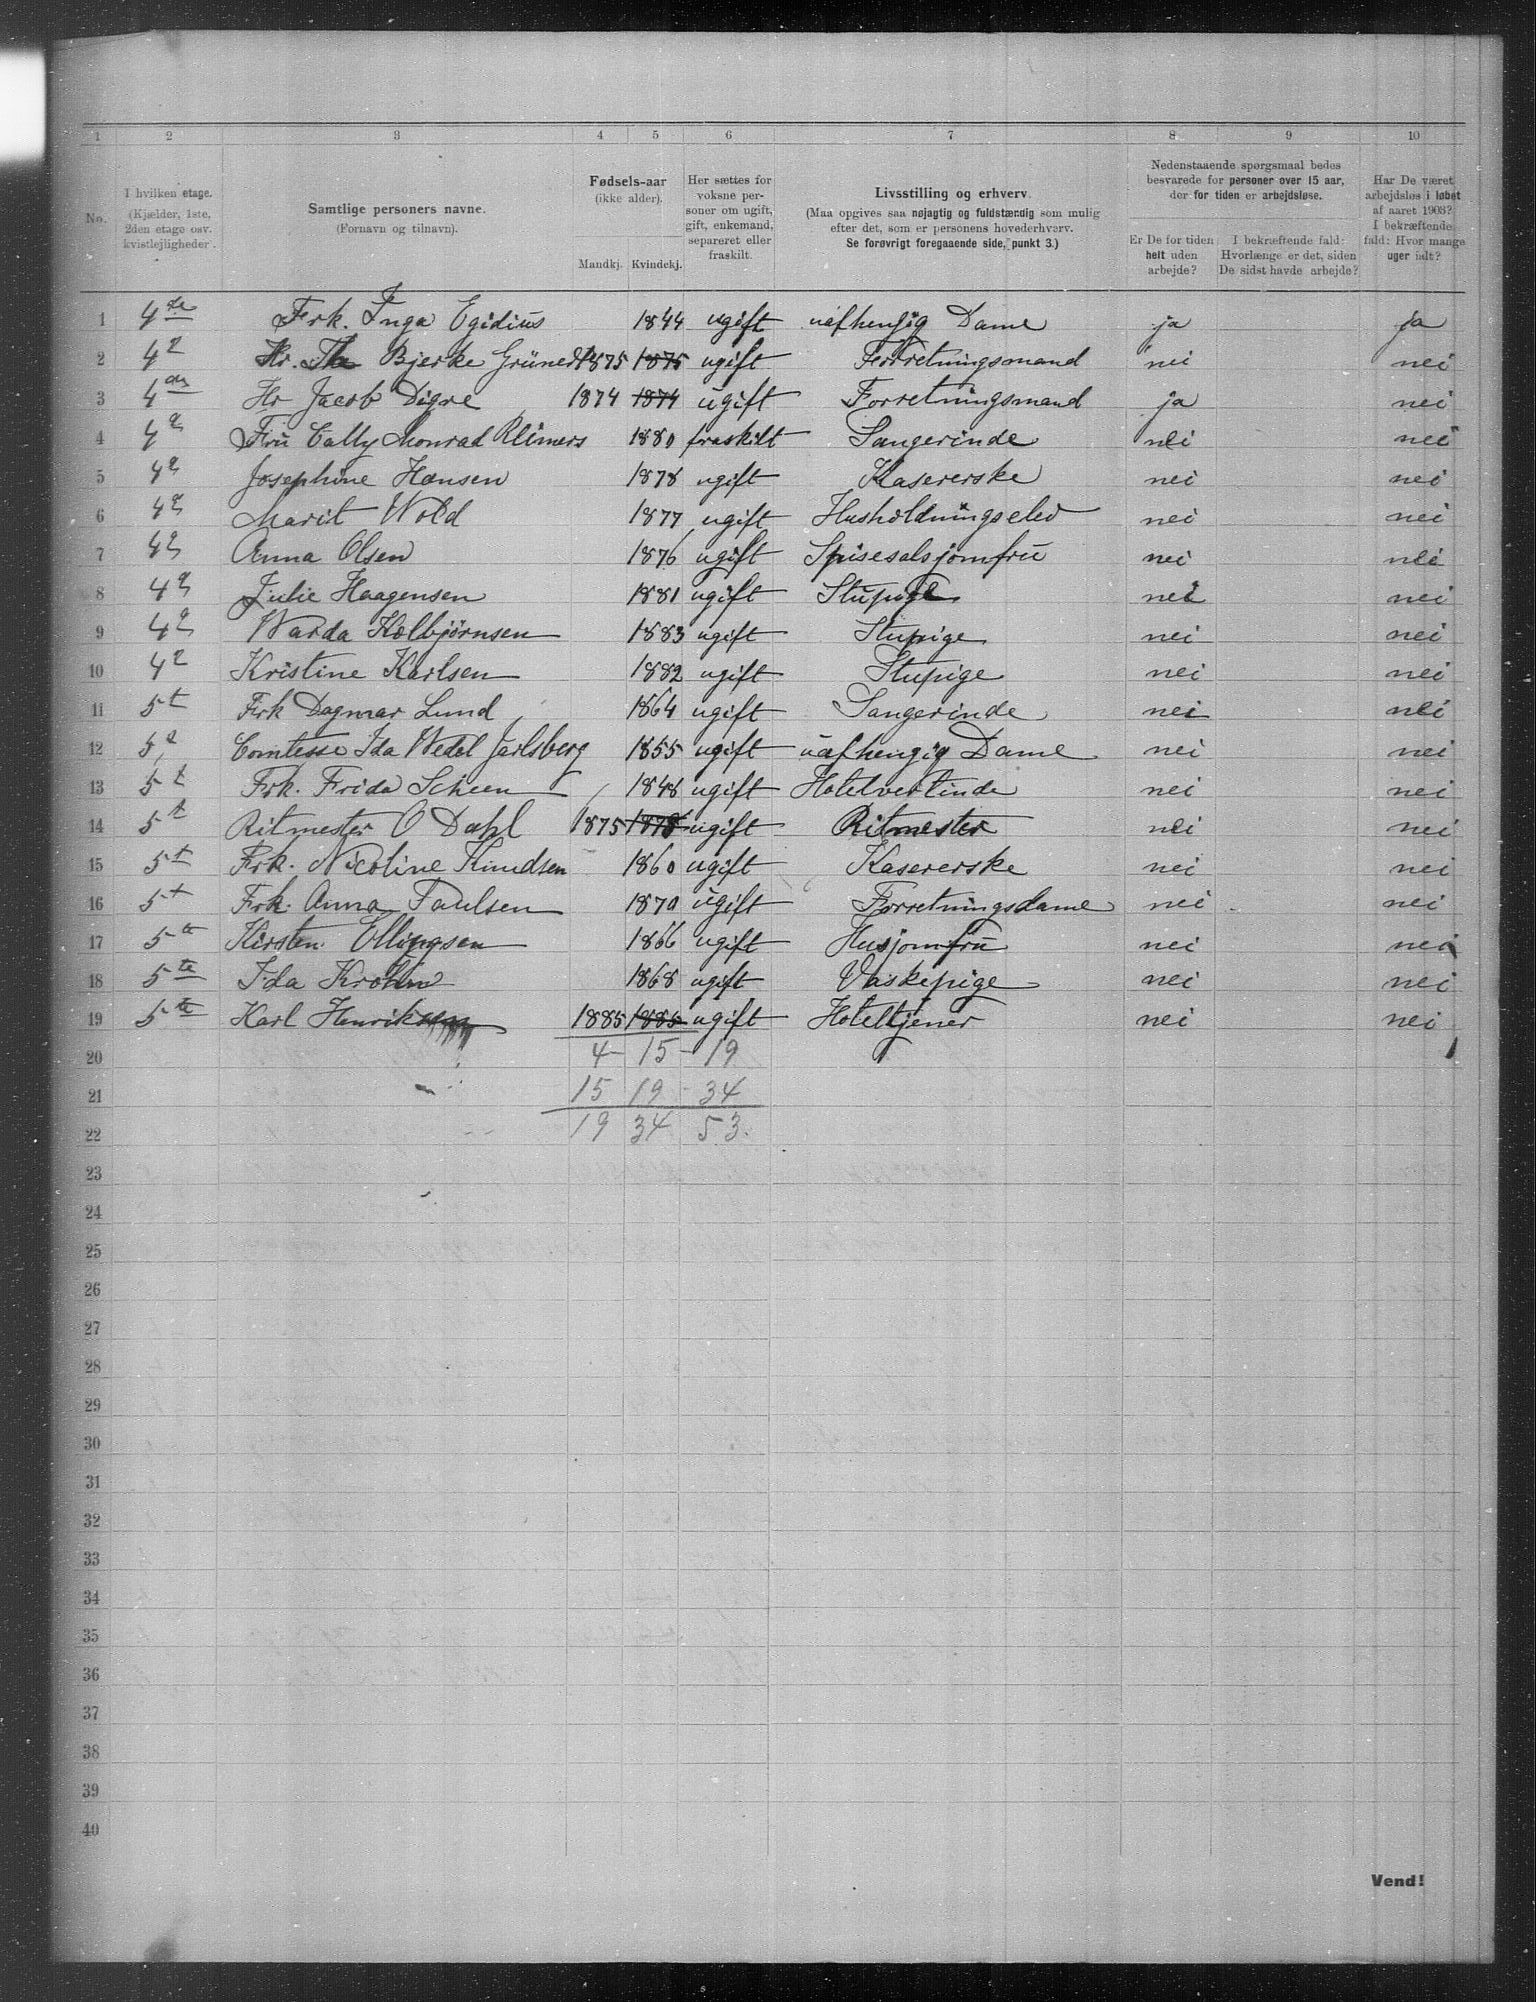 1 2 3 4 5 6 7 8 9 10
No.
I hvilken etage.
(Kjælder, 1ste,
2den etage osv.
kvistlejligheder.
Samtlige personers navne.
(Fornavn og tilnavn).
Fødsels-aar
(ikke alder).
Mandkj. Kvindekj.
Her sættes for
voksne per-
soner om ugift,
gift, enkemand,
separeret eller
fraskilt.
Livsstilling og erhverv.
(Maa opgives saa nøjagtig og fuldstændig som mulig
efter det, som er personens hovederhverv.
Se forøvrigt foregaaende side, punkt 3.)
Nedenstaaende spørgsmaal bedes
besvarede for personer over 15 aar,
der for tiden er arbejdsløse.
Er De for tiden
helt uden
arbejde?
I bekræftende fald:
Hvorlænge er det, siden
De sidst havde arbejde?
Har De været
arbejdsløs i løbet
af aaret 1903?
I bekræftende
fald: Hvor mange
uger ialt?
1 4de Frk. Inga Egidius 1844 ugift uafhengig Dame ja ja
2 4de Hr. Bjerke 1875 1875 ugift Forretningsmand nei nei
3 4de Hr Jacob Digre 1874 1874 ugift Forretningsmand ja nei
4 4de Fru Cally Monrad Reimers 1880 fraskilt Sangerinde nei nei
5 4de Josephine Hansen 1878 ugift Kasererske nei nei
6 4de Marit Wold 1877 ugift Husholdningselev nei nei
7 4de Anna Olsen 1876 ugift Spisesalsjomfru nei nei
8 4de Julie Haagensen 1881 ugift Stupige nei nei
9 4de Warda Kolbjørnsen 1883 ugift Stupige nei nei
10 4de Kristine Karlsen 1882 ugift Stupige nei nei
11 5t Frk Dagmar Lund 1864 ugift Sangerinde nei nei
12 5t Comtesse Ida Wedel Jarlsberg 1855 ugift uafhengig Dame nei nei
13 5t Frk. Frida Scheen 1848 ugift Hotelvertinde nei nei
14 5t Ritmester O Dahl 1875 1875 ugift Ritmester nei nei
15 5t Frk. Nicoline Knudsen 1860 ugift Kasererske nei nei
16 5t Frk. Anna Paulsen 1870 ugift Forretningsdame nei nei
17 5te Kirsten Ellingsen 1866 ugift Husjomfru nei nei
18 5te Ida Krohn 1868 ugift Vaskepige nei nei
19 5te Karl Henriksen 1885 1885 ugift Hoteltjener nei nei
20 4 - 15 - 19
21 15 19 - 34
22 19 34 53.
23
24
25
26
27
28
29
30
31
32
33
34
35
36
37
38
39
40
Vend!